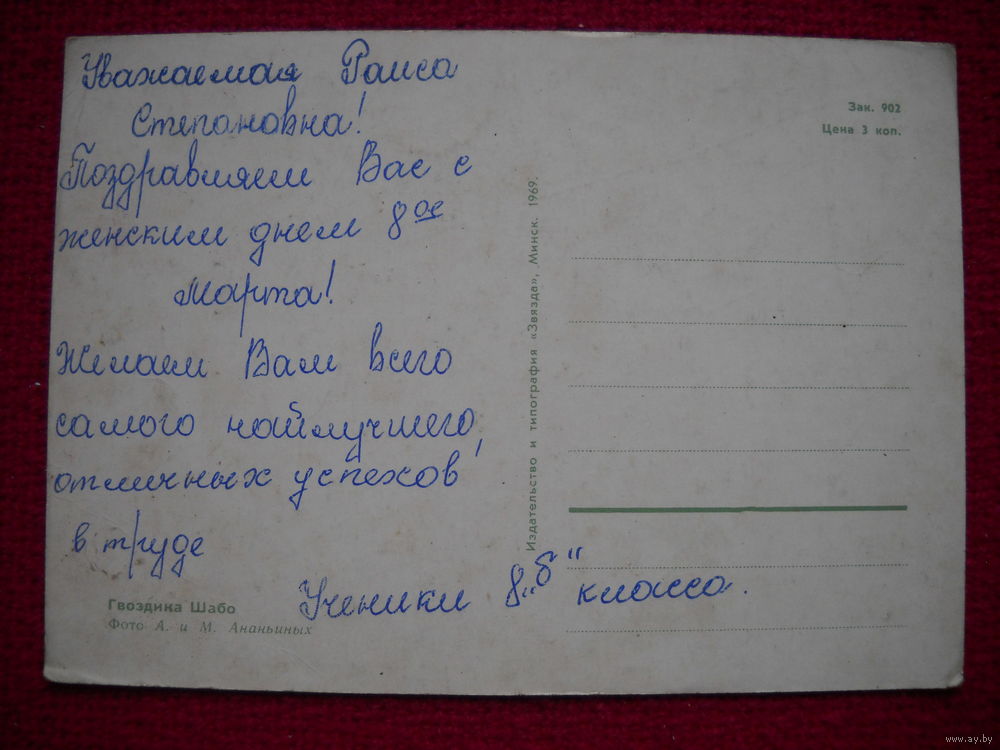 Уважаемая Раиса
Степановна!
Поздравляем Вас с
женским днем 8ое
марта!
Желаем Вам всего
самого найлучшего,
отличных успехов
в труде
Ученики 8 „б“ класса.
Гвоздика Шабо
Фото А. и М. Ананьиных
Издательство и типография «Звязда», Минск. 1969.
Зак. 902
Цена 3 коп.
www.ay.by